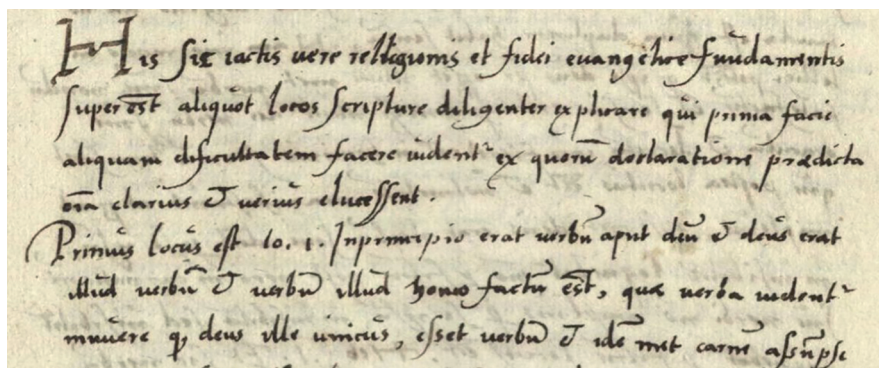 His sic iactis vere relligionis et fidei euangelice fũdamentis
superest aliquot locos scripture diligenter explicare qui prima facie
aliquam dificultatem facere uident᷑ ex quorũ declaratione prædicta
oĩa clarius & verius elucessent.
Primus locus est Io. 1. In principio erat verbũ aput deũ & deus erat
illud verbũ & verbũ illud homo factũ est, quæ verba uident᷑
innuere ꝙ deus ille unicus, esset verbũ & idẽ met carnẽ assũpse